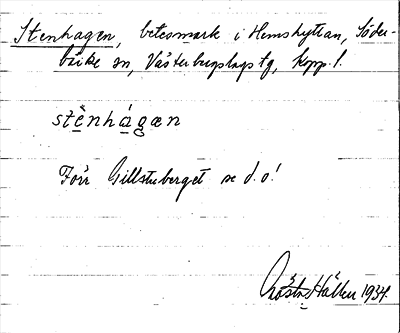 Stenhagen, betesmark i Hemshyttan, Söder-
bärke sn, Västerbergslags tg, Kopp. l.
stènhágæn
Förr Gillstuberget se d.o!
Gösta Hallén 1934.